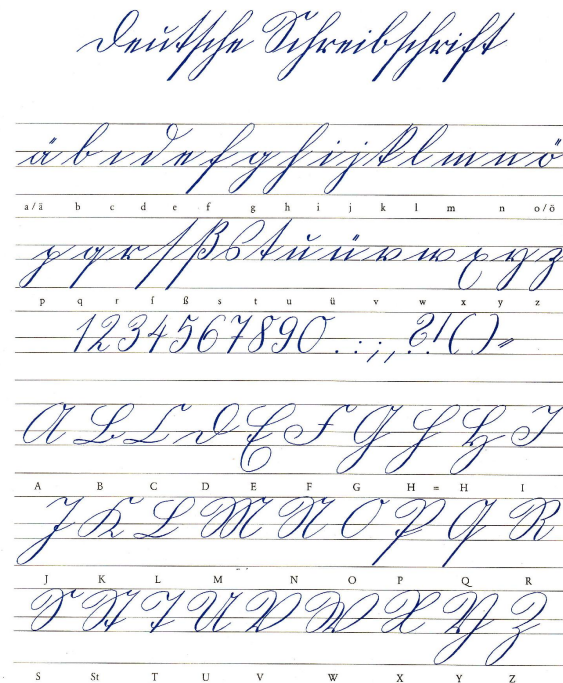 Deutsche Schreibschrift
ä b c d e f g h i j k l m n ö
a/ä b c d e f g h i j k l m n o/ö
p q r ſ ß s t u ü v w x y z
p q r ſ ß s t u ü v w x y z
1234567890 . : ; , ? ! ( ) „
A B C D E F G H H I
A B C D E F G H = H I
J K L M N O P Q R
J K L M N O P Q R
S St T U V W X Y Z
S St T U V W X Y Z